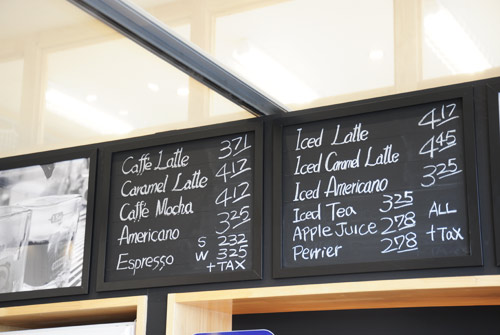 Caffè Latte 371
Caramel Latte 417
Caffè Mocha 417
Americano 325
Espresso S 232
W 325
+TAX
Iced Latte 417
Iced Caramel Latte 445
Iced Americano 325
Iced Tea 325
Apple Juice 278 ALL
Perrier 278 +TAX